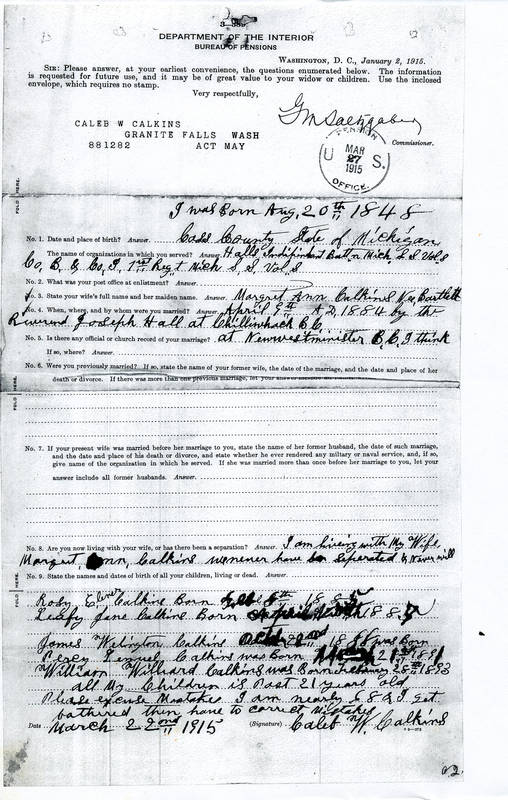 3—389.
DEPARTMENT OF THE INTERIOR
BUREAU OF PENSIONS
WASHINGTON, D. C., January 2, 1915.
SIR: Please answer, at your earliest convenience, the questions enumerated below. The information
is requested for future use, and it may be of great value to your widow or children. Use the inclosed
envelope, which requires no stamp.
Very respectfully,
CALEB W CALKINS
GRANITE FALLS WASH
881282 ACT MAY
Commissioner.
PENSION
U S.
MAR
27
1915
OFFICE.
FOLD HERE.
I was Born Aug, 20th 1848
No. 1. Date and place of birth? Answer. Cass County State of Michigan
The name of organizations in which you served? Answer. Halls Independent Batt'n Mich. S S Vols
Co, B, & Co, I, 1st Regt Mich S, S Vol, S
No. 2. What was your post office at enlistment? Answer.
No. 3. State your wife's full name and her maiden name. Answer. Margret Ann Calkins Nee Bartlett
No. 4. When, where, and by whom were you married? Answer. April 9th A D, 1884 by the
Riverend Joseph Hall at Chilliwhack B C
No. 5. Is there any official or church record of your marriage? at Newwestminister B, C, I think
If so, where? Answer.
No. 6. Were you previously married? If so, state the name of your former wife, the date of the marriage, and the date and place of her
death or divorce. If there was more than one previous marriage, let your answer
No. 7. If your present wife was married before her marriage to you, state the name of her former husband, the date of such marriage,
and the date and place of his death or divorce, and state whether he ever rendered any military or naval service, and, if so,
give name of the organization in which he served. If she was married more than once before her marriage to you, let your
answer include all former husbands. Answer.
No. 8. Are you now living with your wife, or has there been a separation? Answer. I am living with My Wife,
Margret Ann, Calkins we never have be Seperated & Never will
FOLD HERE.
No. 9. State the names and dates of birth of all your children, living or dead. Answer.
Calkins Born 6th 188
Leafy Jane Calkins Born 188
James Calkins 22nd was Born
Calkins was Born 21st
William Williard Calkins was Born 28th 1893
all My Children is Past 21 years old
Please excuse Mistakes I am nearly 68 & I get
bothered then have to correct mistakes
Date March 22nd 1915 (Signature) Caleb W. Calkins